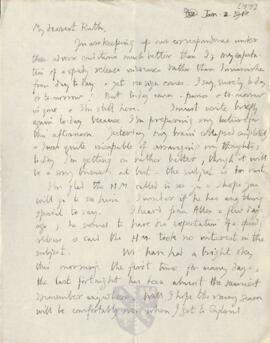 [1919]
Jan. 2. 1919
My dearest Ruth,
In our keeping of our correspondence under
these adverse conditions much better than I; my expectation
of a speedy release
from day to day & yet no sign comes. I say surely today
or tomorrow. But today comes & passes & tomorrow
is gone & I'm still here. I must write briefly
again today because I'm preparing my lecture for
this afternoon. Yesterday my brain collapsed completely
& I was quite incapable of arranging my thoughts;
today I'm getting on rather better, though it will
be a very at best – the subject is too vast.
I'm glad the H.M. called to see you & I hope you
will go to see him. I wonder if he has anything
special to say. I heard from Allen a few days
ago; he seemed to have no expectation of a speedy
release & said the H.M. took no interest in the
subject. We have had a bright sky
this morning the first time for many days;
the last fortnight has been about the
I remember anywhere. Well I hope the rainy season
will be comfortably over when I get to England